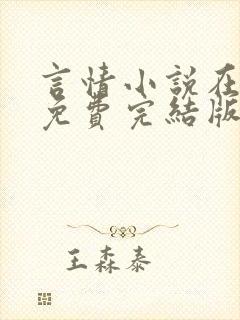 言情小說在
免費完結版
王森泰